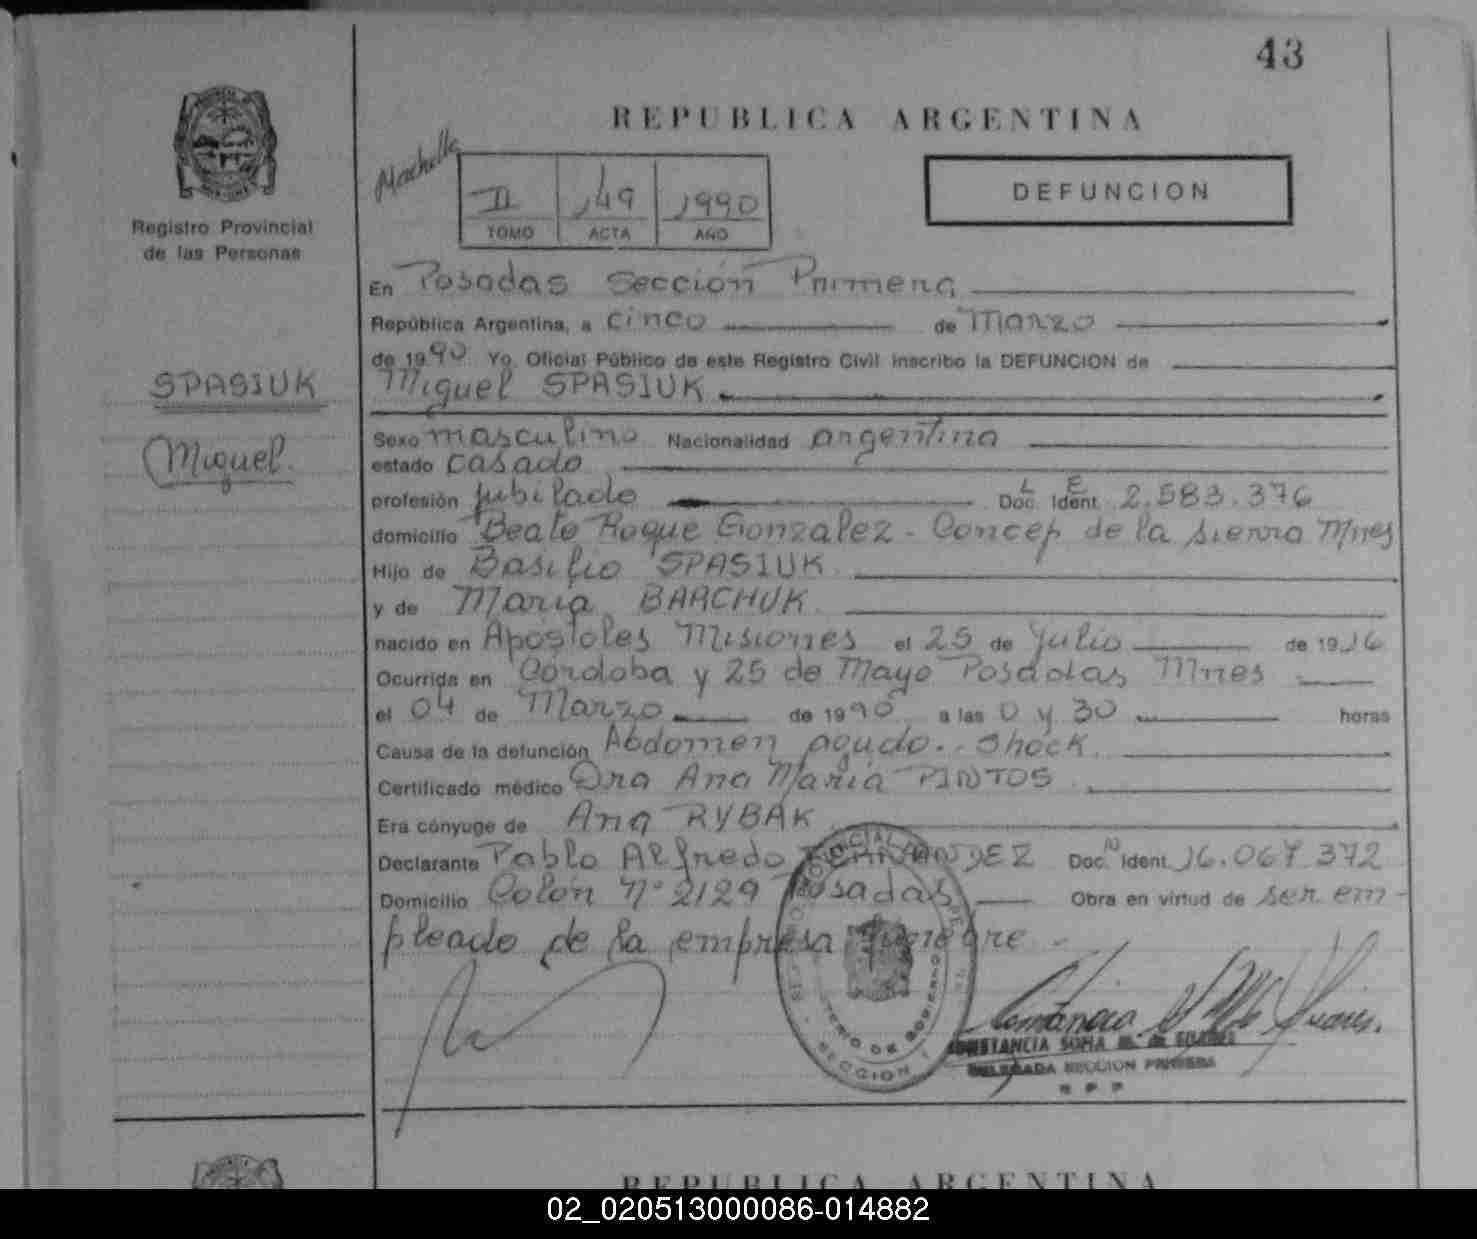 43
REPUBLICA ARGENTINA
Registro Provincial
de las Personas
II 149 1990
TOMO ACTA AÑO
DEFUNCION
SPASIUK
Miguel.
En Posadas Sección Primera
República Argentina, a cinco de Marzo
de 1990 Yo, Oficial Público de este Registro Civil inscribo la DEFUNCION de
Miguel SPASIUK
Sexo masculino Nacionalidad argentina
estado casado
profesión jubilado Doc. Ident. L E 2.583.376
domicilio Beato Roque Gonzalez - Concep de la sierra Mnes
Hijo de Basilio SPASIUK
y de María BARCHUK
nacido en Apóstoles Misiones el 25 de Julio de 1916
Ocurrida en Córdoba y 25 de Mayo Posadas Mnes
el 04 de Marzo de 1990 a las 0 y 30 horas
Causa de la defunción Abdomen agudo.. Shock
Certificado médico Dra Ana María PINTOS
Era cónyuge de Ana RYBAK
Declarante Pablo Alfredo FERNANDEZ Doc. N Ident. 16.067.372
Domicilio Colón Nº 2129 Posadas Obra en virtud de ser em-
pleado de la empresa funebre
CONSTANCIA SOFIA
DELEGADA SECCION PRIMERA
R P P
SECCION
REPUBLICA ARGENTINA
02_020513000086-014882